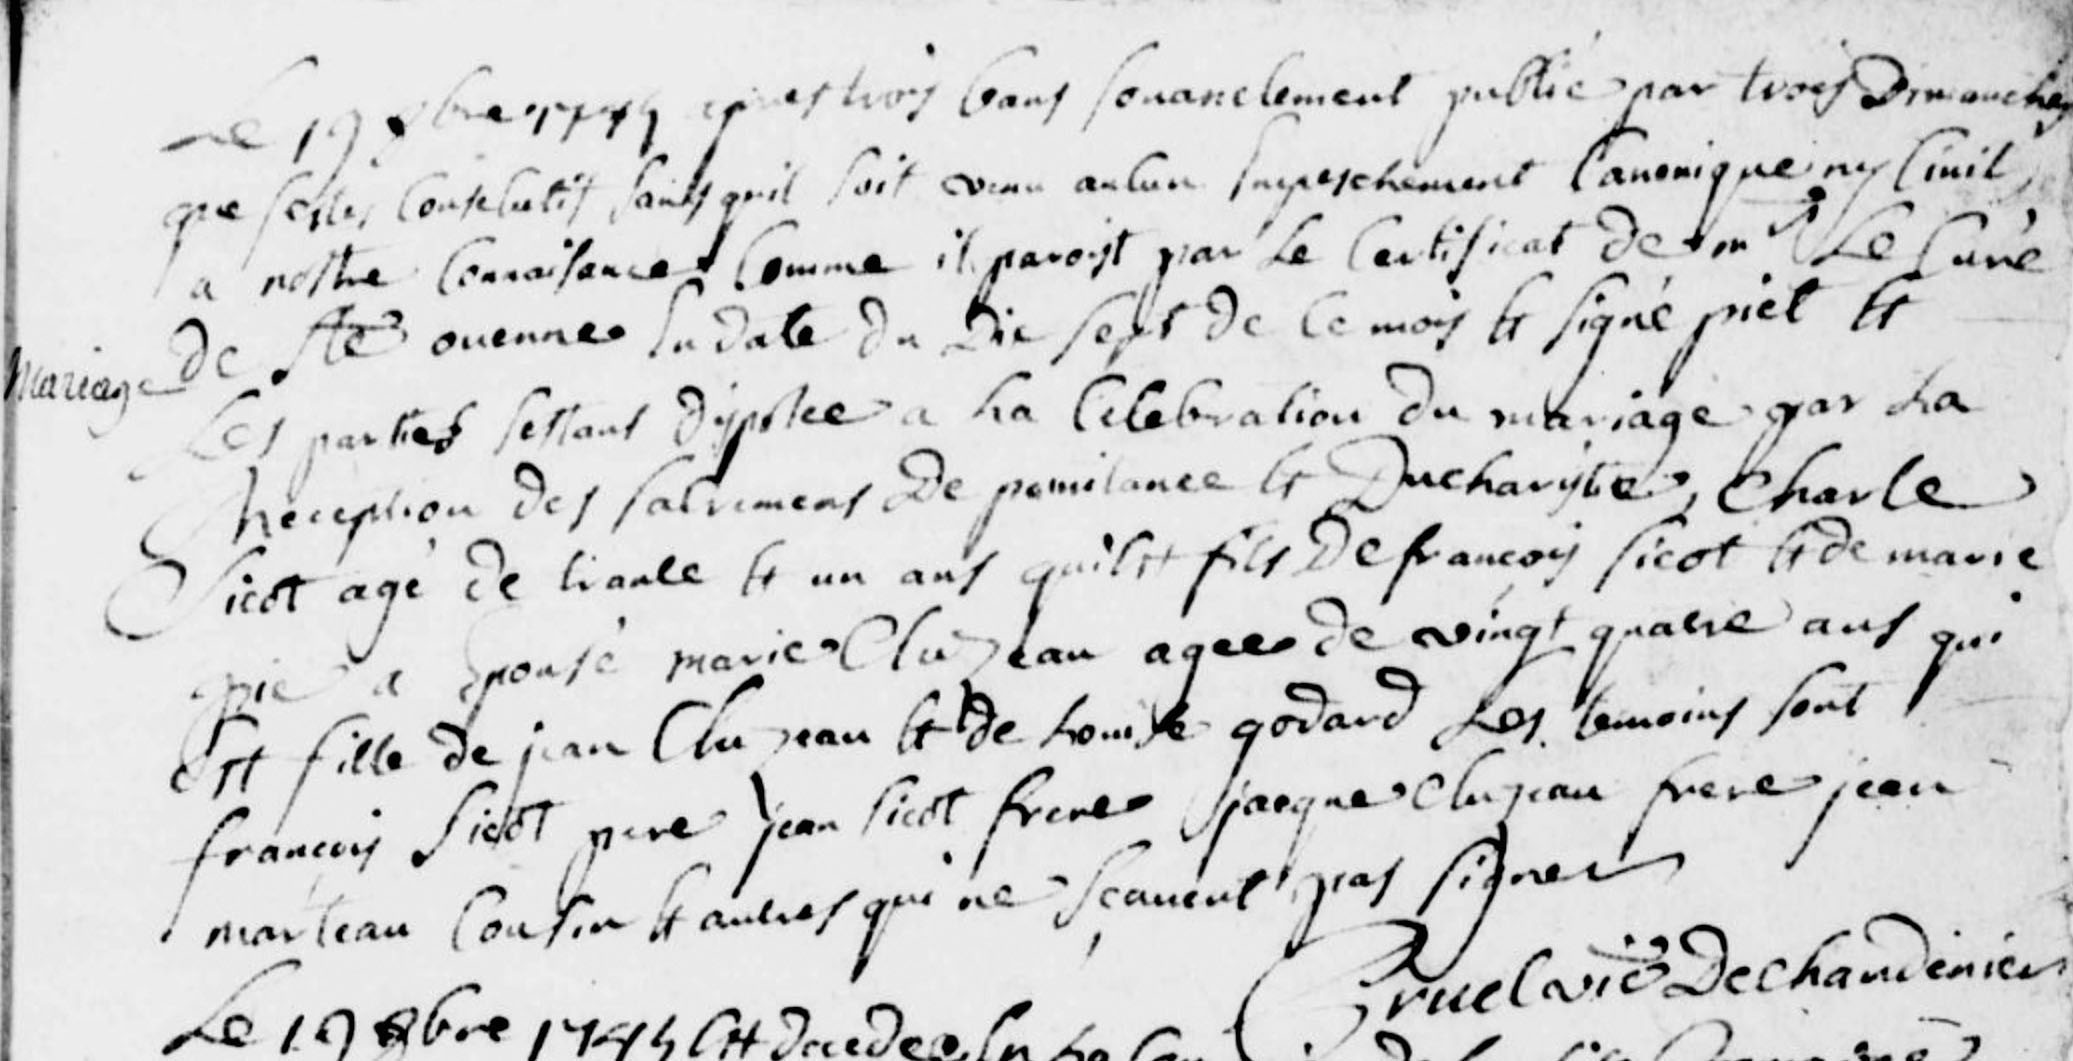 Le 19 8bre 1745 apres trois bans sonanelement publié par trois Dimanches
que festes Consecutif sans quil soit venu aucun Impeschement Canonique ny Civil
a nostre Connaisance Comme il paroist par Le Certificat de mr Le Curé
Mariage
de Ste ouenne En date du Dix sept de ce mois et signé piet et
Les parties sestans dispstee a La Celebration du mariage par La
Reception des sacremens De penitance et Ducharistie, Charle
Sicot agé de trante et un ans qui est fils De francois sicot et de marie
pie a Epousé marie Cluzeau agee de vingt quatre ans qui
Est fille de jean Cluzeau et de Louise godard Les temoins sont
francois Sicot pere jean sicot frere jacque Cluzeau frere jean
marteau Cousin et autres qui ne sçavent pas signer
Gruel vic De Chandenier
Le 19 8bre 1745